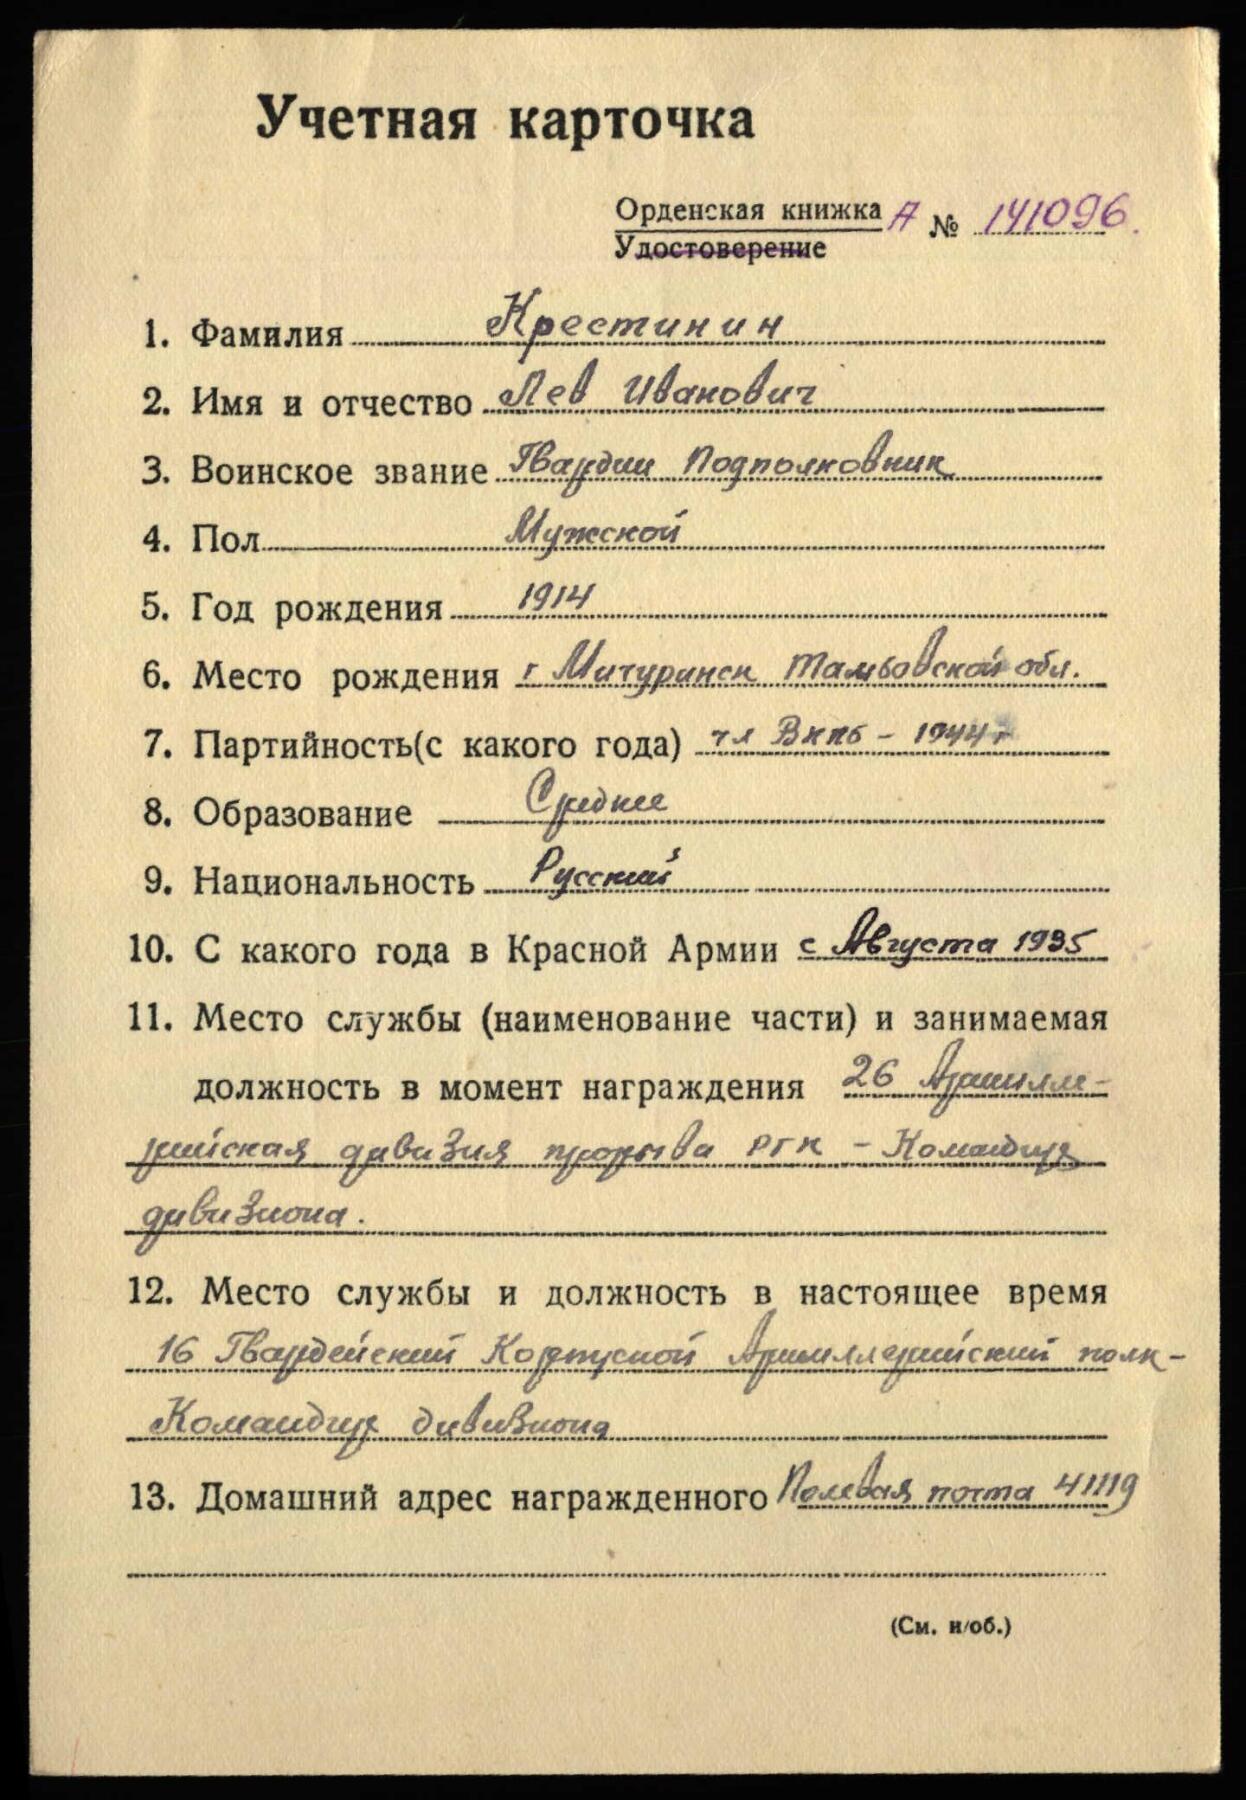 Учетная карточка
Орденская книжка А № 141096.
Удостоверение
1. Фамилия Крестинин
2. Имя и отчество Лев Иванович
3. Воинское звание Гвардии Подполковник
4. Пол Мужской
5. Год рождения 1914
6. Место рождения г Мичуринск Тамбовской обл.
7. Партийность (с какого года) чл Вкпб - 1944 г
8. Образование Среднее
9. Национальность Русский
10. С какого года в Красной Армии с Августа 1935
11. Место службы (наименование части) и занимаемая
должность в момент награждения 26 Артилле-
рийская дивизия прорыва РГК - Командир
дивизиона.
12. Место службы и должность в настоящее время
16 Гвардейский Корпусной Артиллерийский полк-
Командир дивизиона
13. Домашний адрес награжденного Полевая почта 41119
(См. н/об.)